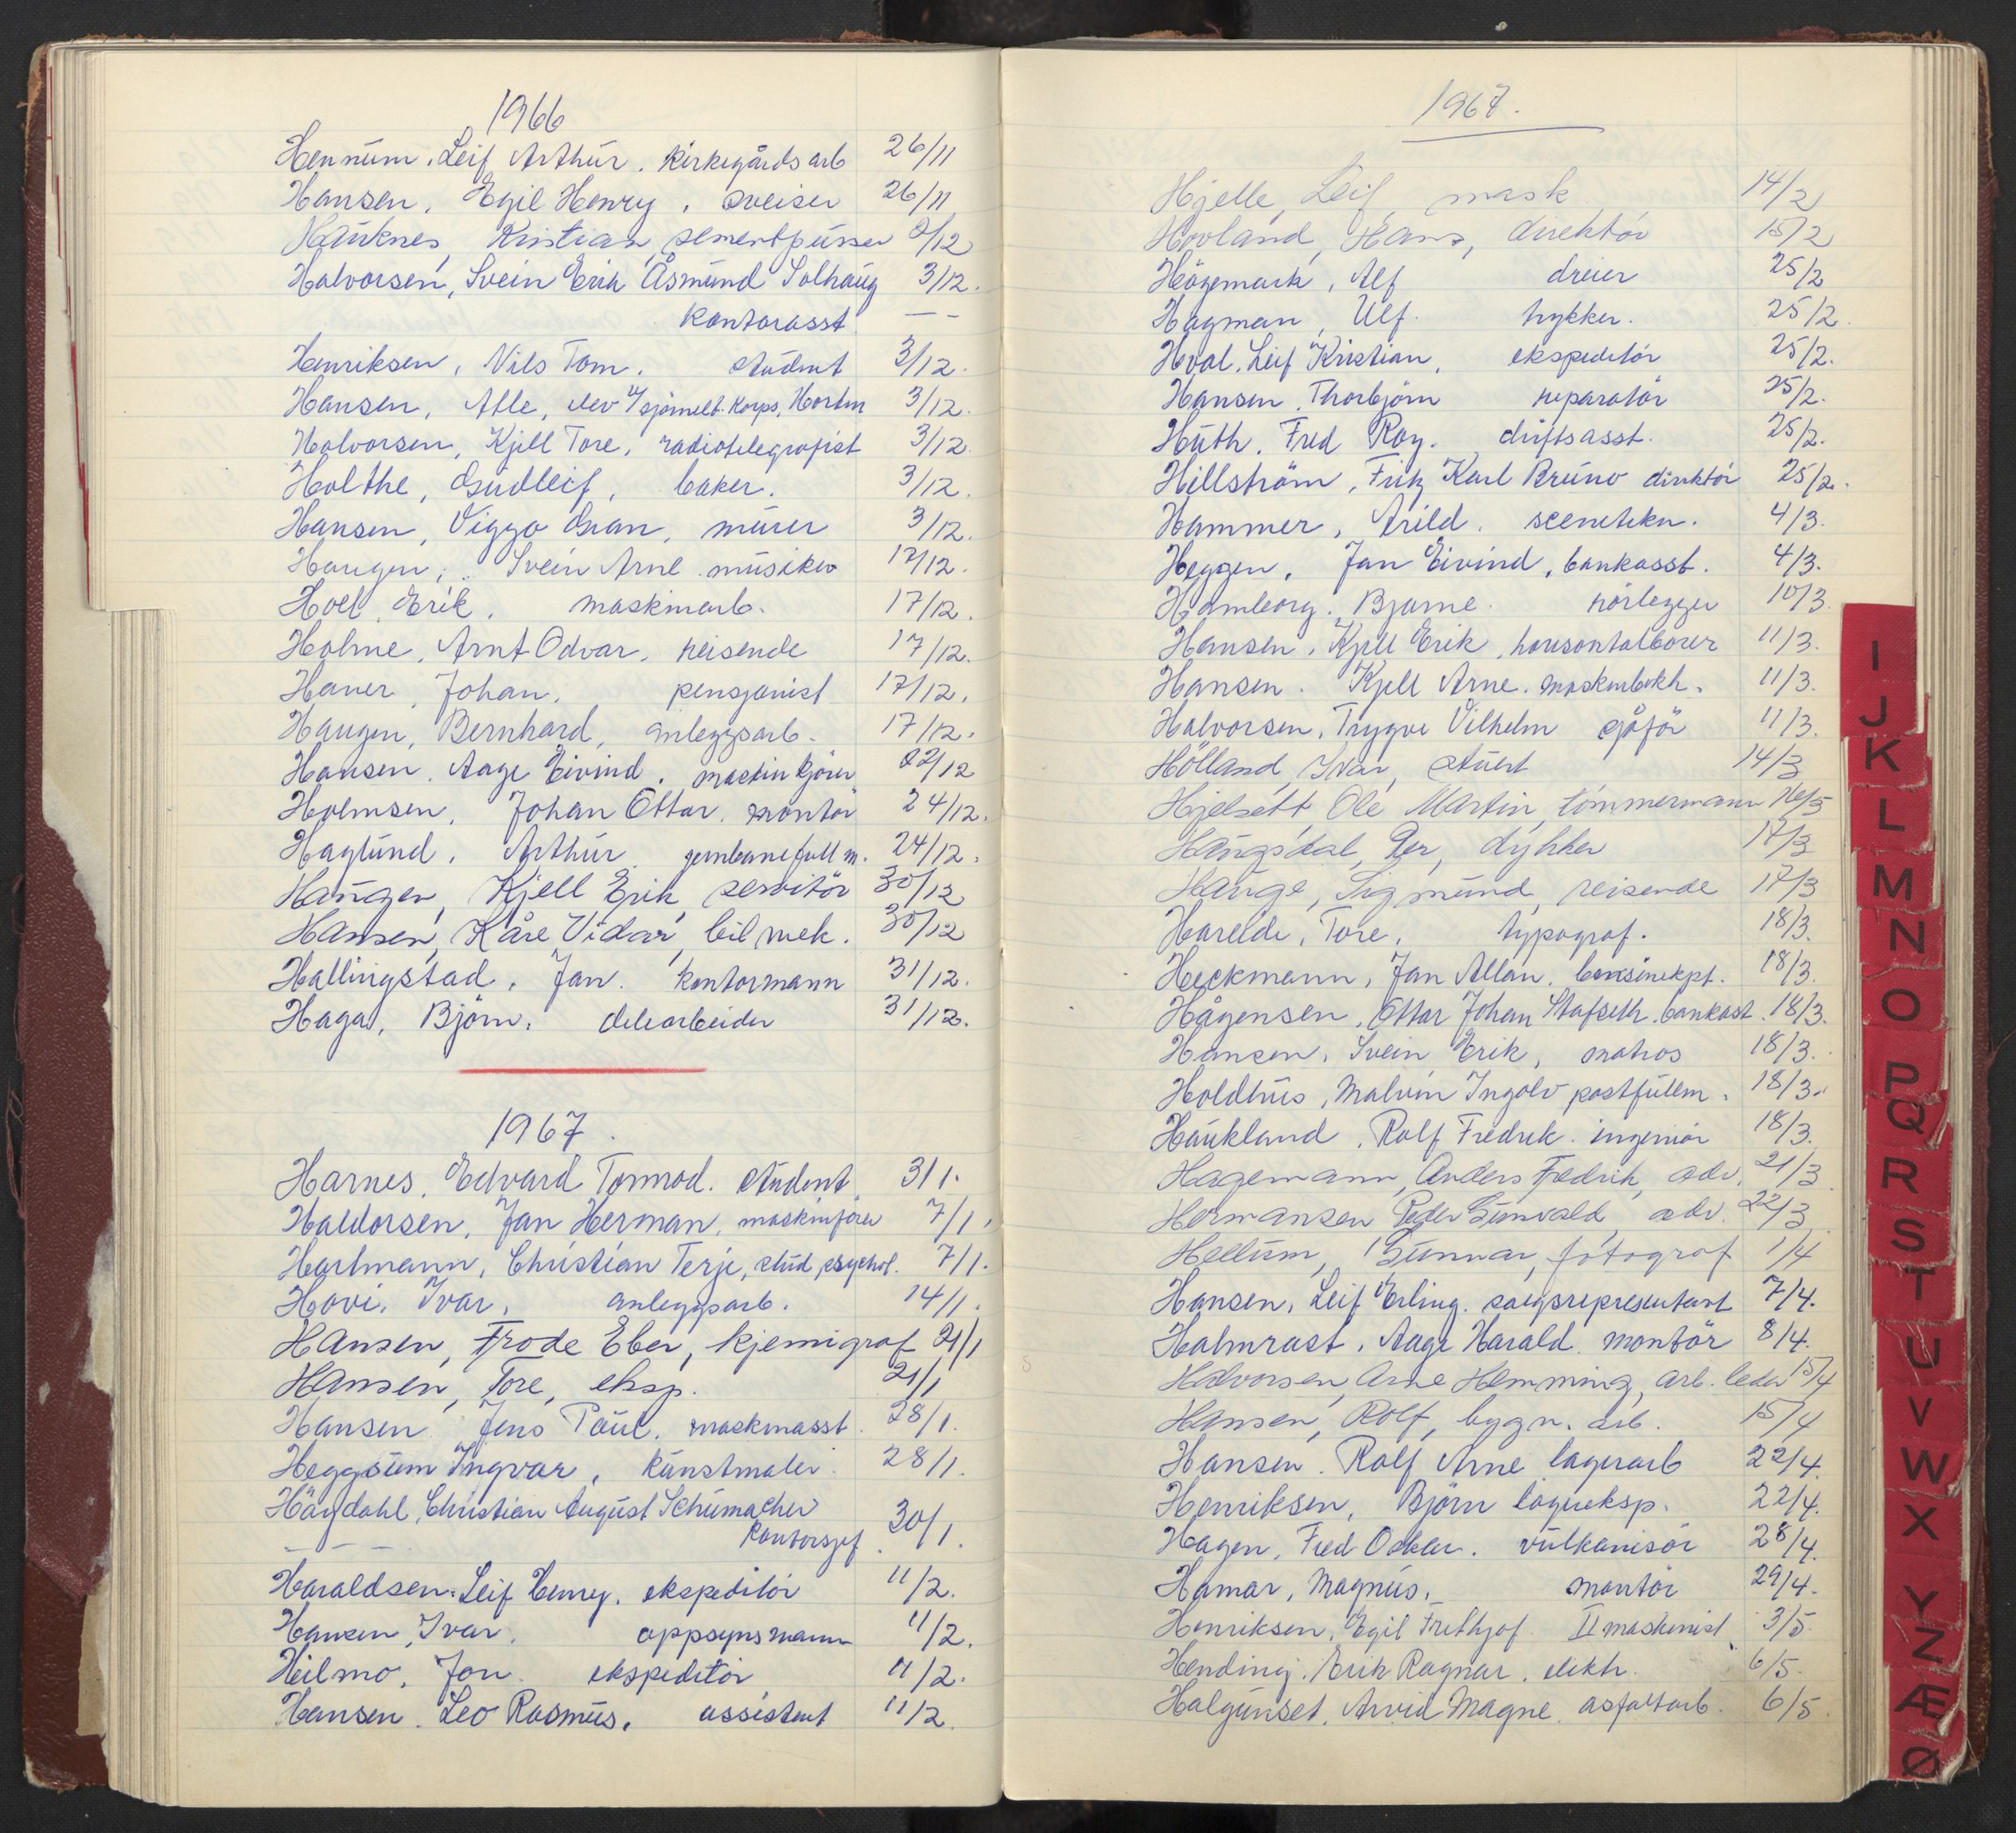 1966
Hennum, Leif Arthur. kirkegårdsarb 26/11
Hansen, Egil Henry, sveiser 26/11
Hauknes, Kristian, sementpusser 2/12
Halvorsen, Svein Erik Åsmund Solhaug 3/12.
kontorasst. — -
Henriksen, Nils Tom. student 3/12.
Hansen, Atle, elev v/ sjømilt. korps, Horten 3/12.
Halvorsen, Kjell Tore, radiotelegrafist 3/12.
Holthe, Gudleif, baker. 3/12.
Hansen, Viggo Gran, murer 3/12.
Haugen, Svein Arne. musiker 17/12.
Hoel, Erik, maskinarb. 17/12.
Holme, Arnt Odvar, reisende 17/12.
Haner, Johan, pensjonist 17/12.
Haugen, Bernhard, anleggsarb. 17/12.
Hansen, Aage Eivind. maskinkjører 22/12
Holmsen, Johan Ottar. montör 24/12.
Haglund, Arthur. jernbanefullm. 24/12.
Haugen, Kjell Erik, servitör 30/12
Hansen, Kåre Vidar, bilmek. 30/12
Hallingstad, Jan. kontormann 31/12.
Haga, Björn, delearbeider 31/12.
1967.
Harnes, Edvard Tormod. student. 3/1.
Haldorsen, Jan Herman, maskinfører 7/1.
Hartmann, Christian Terje, stud psychol. 7/1.
Hovi, Ivar, anleggsarb. 14/1.
Hansen, Frode Eber, kjemigraf 21/1
Hansen, Tore, eksp. 21/1
Hansen, Jens Paul, maskinasst. 28/1.
Heggsum Ingvar, kunstmaler. 28/1.
Hägdahl, Christian August Schumacher
kontorsjef. 30/1.
Haraldsen. Leif Henry. ekspeditör 11/2.
Hansen, Ivar, oppsynsmann 11/2.
Heilmo, Jon. ekspeditör 11/2.
Hansen. Leo Rasmus, assistent 11/2.
1967.
Hjelle, Leif mask 14/2
Hovland, Hans, direktör 15/2
Högemark, Alf dreier 25/2
Hagman, Ulf. trykker. 25/2.
Hval, Leif Kristian, ekspeditör 25/2.
Hansen, Thorbjörn reparatör 25/2.
Huth, Fred Roy. driftsasst. 25/2.
Hillström, Fritz Karl Bruno direktör 25/2.
Hammer, Arild. scenetekn. 4/3.
Heggen, Jan Eivind, bankasst. 4/3.
Hamborg, Bjarne. rörlegger 10/3.
Hansen, Kjell Erik, horisontalborer 11/3.
Hansen. Kjell Arne. maskinbokh. 11/3.
Halvorsen, Trygve Vilhelm sjåför 11/3.
Hölland, Ivar, stuert 14/3
Hjelsett, Ole Martin, tömmermann 16/3
Haugsdal, Per, dykker 17/3
Hauge, Sigmund, reisende 17/3
Hareide, Tore, typograf. 18/3.
Heckmann, Jan Allan, bensinekpt. 18/3.
Hågensen, Ottar Johan Stafseth. bankast. 18/3.
Hansen, Svein Erik, matros 18/3.
Holdhus, Malvin Ingolv postfullm. 18/3.
Haukland, Rolf Fredrik. ingeniör 18/3.
Hagemann, Anders Fredrik, adv. 21/3
Hermansen Peder Gunvald, adv. 22/3
Hellum, Gunnar, fotograf 1/4
Hansen, Leif Erling. salgsrepresentant 7/4.
Halmrast, Aage Harald. montör 8/4.
Halvorsen, Arne Hemming, arb. leder 15/4
Hansen, Rolf, bygn. arb. 15/4
Hansen. Rolf Arne lagerarb 22/4.
Henriksen, Björn lagereksp. 22/4.
Hagen, Fred Oskar. vulkanisör 28/4.
Hamar, Magnus, montör 29/4.
Henriksen, Egil Frithjof. II maskinist 3/5.
Hending, Erik Ragnar. elektr. 6/5.
Halgunset, Arvid Magne. asfaltarb. 6/5.
I
J
K
L
M
N
O
P
Q
R
S
T
U
V
W
X
Y
Z
Æ
Ø